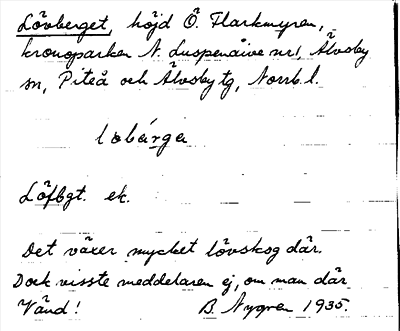 Lövberget, höjd Ö. Flarkmyren,
kronoparken N. Luspenåive nr 1, Älvsby
sn, Piteå och Älvsby tg, Norrb. l.
lobárga
Löfbgt. ek.
Det växer mycket lövskog där.
Dock visste meddelaren ej, om man där
Vänd! B. Nygren 1935.